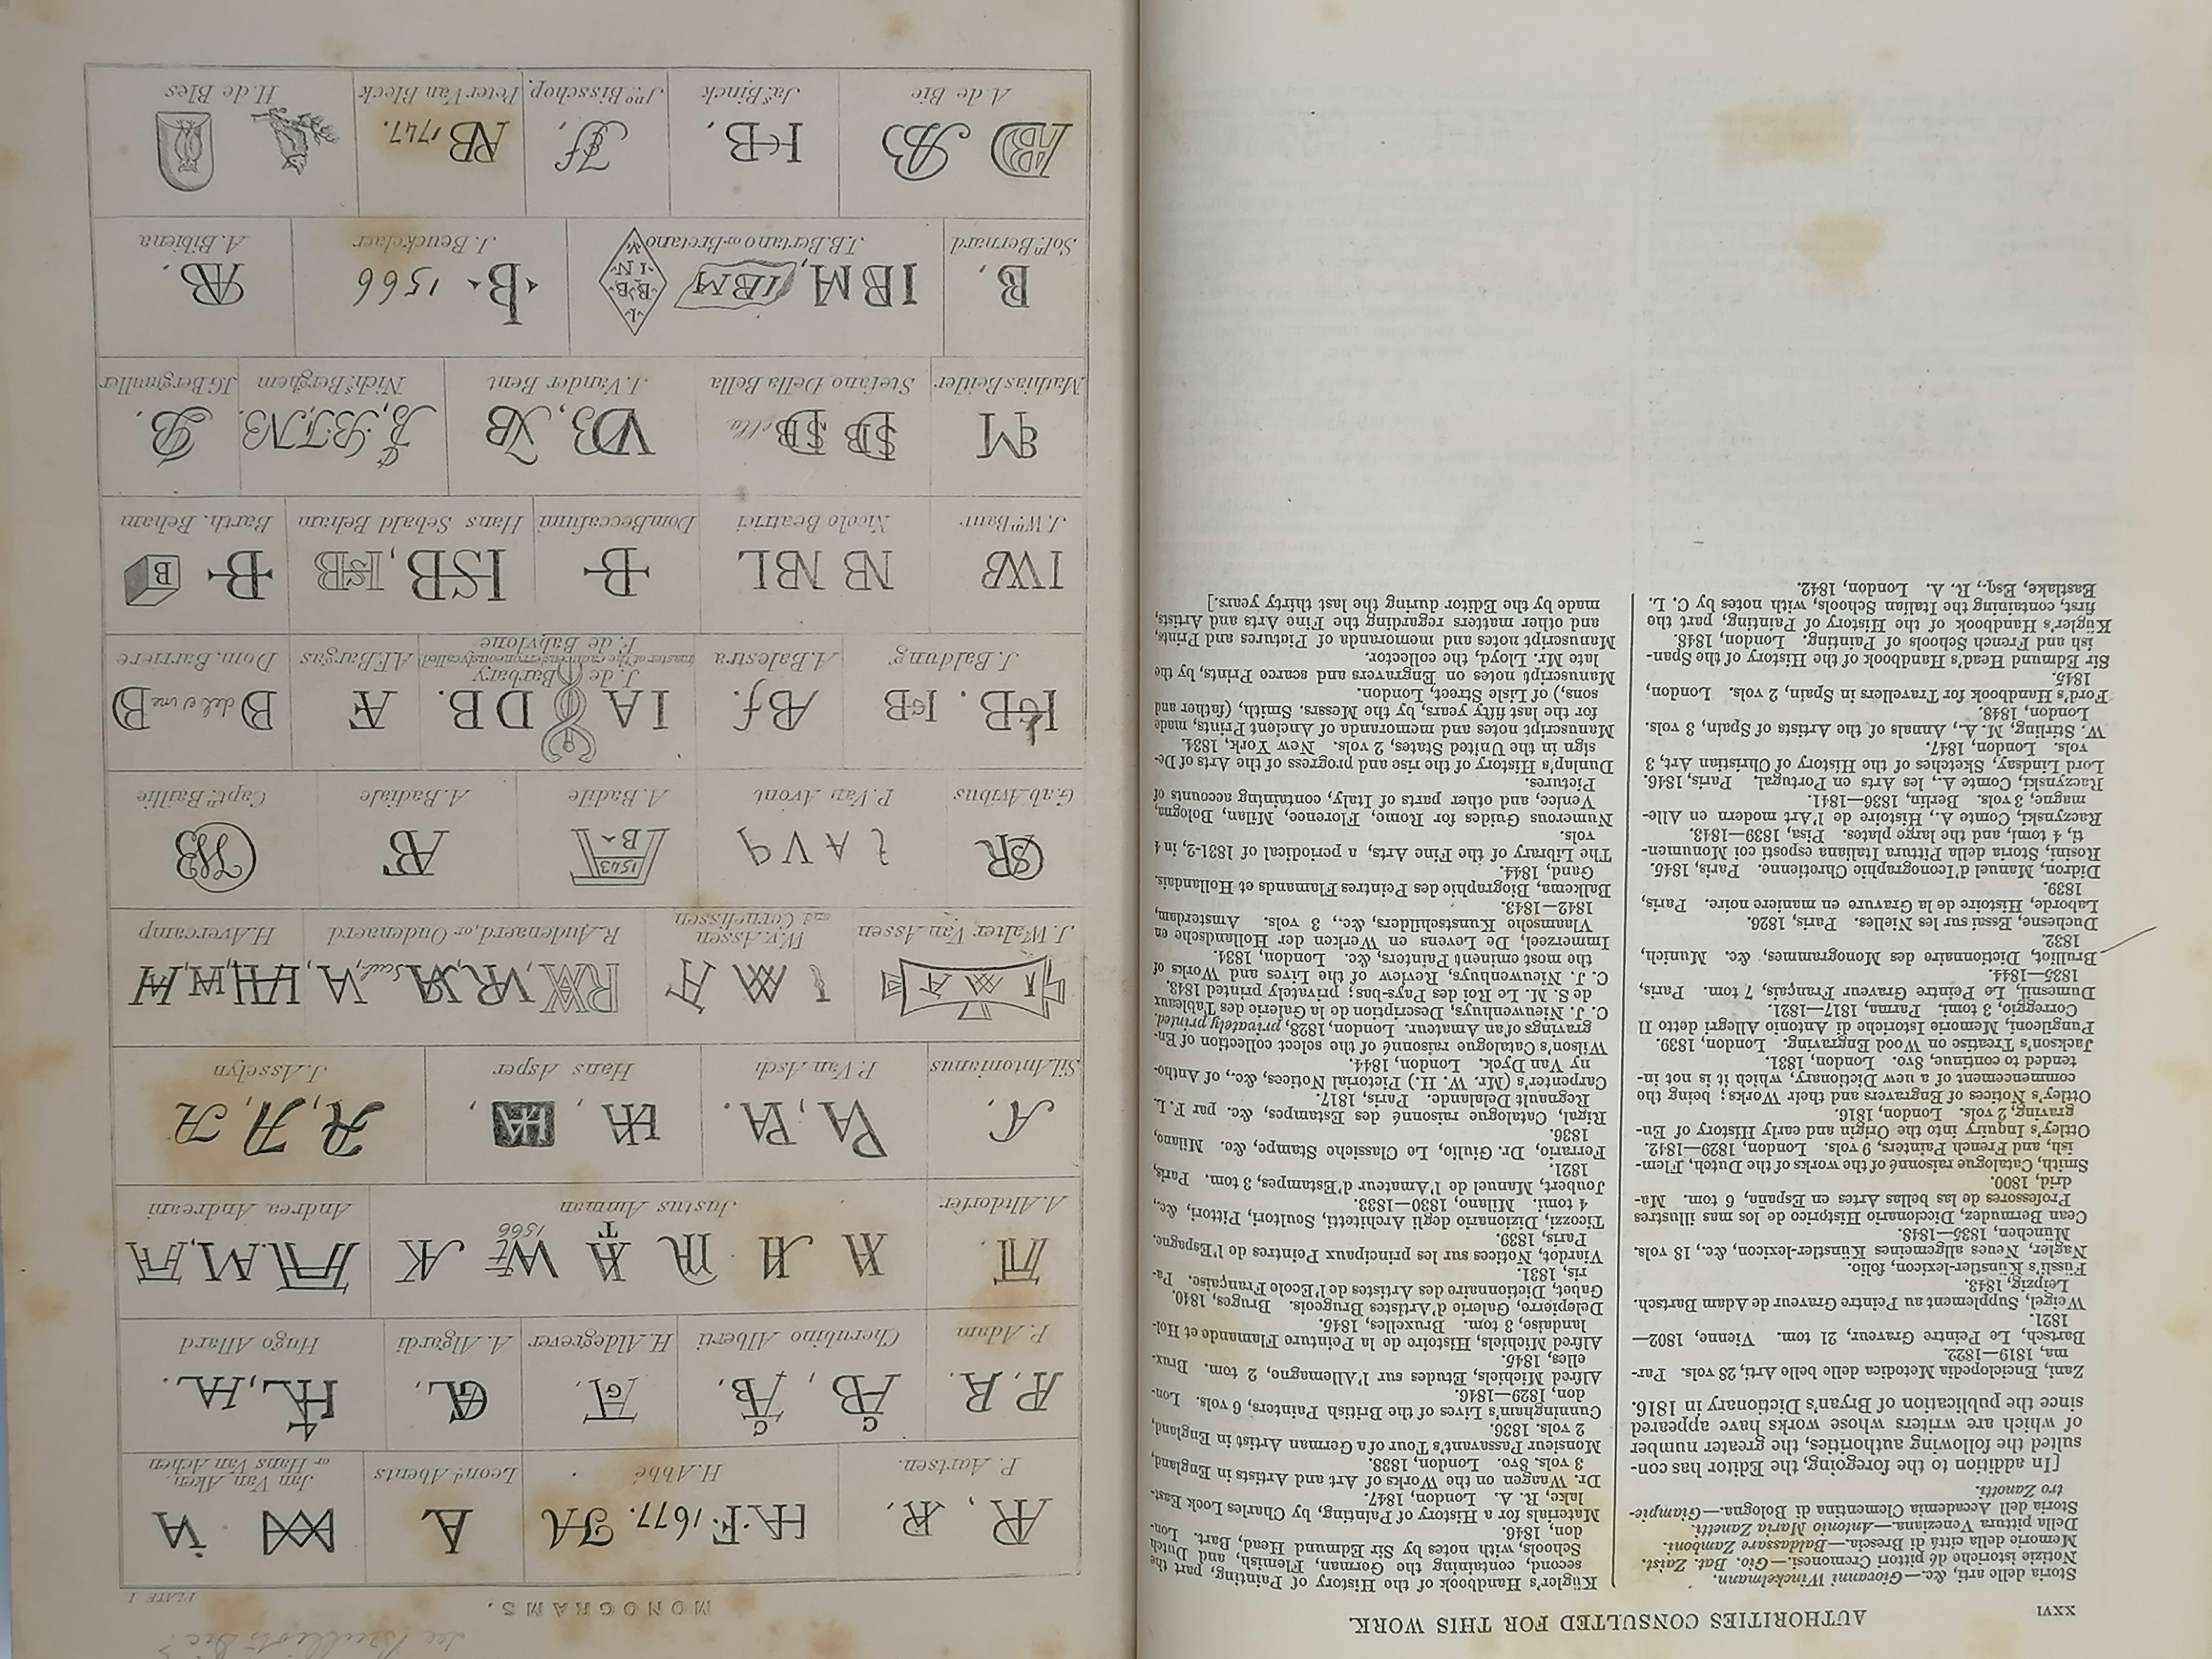 XXVI
AUTHORITIES CONSULTED FOR THIS WORK.
Storia delle arti, &c.—Giovanni Winckelmann.
Notizie istoriche dé pittori Cremonesi.—Gio. Bat. Zaist.
Memorie della cittá di Brescia.—Baldassare Zamboni.
Della pittura Veneziana.—Antonio Maria Zanetti.
Storia dell Accademia Clementina di Bologna.—Giampie-
tro Zanotti.
[In addition to the foregoing, the Editor has con-
sulted the following authorities, the greater number
of which are writers whose works have appeared
since the publication of Bryan's Dictionary in 1816.
Zani, Enciclopedia Metodica delle belle Arti, 28 vols. Par-
ma, 1819—1822.
Bartsch, Le Peintre Graveur, 21 tom. Vienne, 1802—
1821.
Weigel, Supplement au Peintre Graveur de Adam Bartsch.
Leipzig, 1843.
Füssli's Kunstler-lexicon, folio.
Nagler, Neues allgemeines Künstler-lexicon, &c., 18 vols.
München, 1835—1848.
Cean Bermudez, Diccionario Historico de los mas illustres
Professores de las bellas Artes en España, 6 tom. Ma-
drid, 1800.
Smith, Catalogue raisonné of the works of the Dutch, Flem-
ish, and French Painters, 9 vols. London, 1829—1842.
Ottley's Inquiry into the Origin and early History of En-
graving, 2 vols. London, 1816.
Ottley's Notices of Engravers and their Works; being the
commencement of a new Dictionary, which it is not in-
tended to continue, 8vo. London, 1831.
Jackson's Treatise on Wood Engraving. London, 1839.
Pungileoni, Memorie Istoriche di Antonio Allegri detto Il
Correggio, 3 tomi. Parma, 1817—1821.
Dumesnil, Le Peintre Graveur Français, 7 tom. Paris,
1835—1844.
Brulliot, Dictionnaire des Monogrammes, &c. Munich,
1832.
Duchesne, Essai sur les Nielles. Paris, 1826.
Laborde, Histoire de la Gravure en maniere noire. Paris,
1839.
Didron, Manuel d'Iconographie Chretienne. Paris, 1845.
Rosini, Storia della Pittura Italiana esposti coi Monumen-
ti, 4 tomi, and the large plates. Pisa, 1839—1843.
Raczynski, Comte A., Histoire de l'Art modern en Alle-
magne, 3 vols. Berlin, 1836—1841.
Raczynski, Comte A., les Arts en Portugal. Paris, 1846.
Lord Lindsay, Sketches of the History of Christian Art, 3
vols. London, 1847.
W. Stirling, M. A., Annals of the Artists of Spain, 3 vols.
London, 1848.
Ford's Handbook for Travellers in Spain, 2 vols. London,
1845.
Sir Edmund Head's Handbook of the History of the Span-
ish and French Schools of Painting. London, 1848.
Kügler's Handbook of the History of Painting, part the
first, containing the Italian Schools, with notes by C. L.
Eastlake, Esq., R. A. London, 1842.
Kügler's Handbook of the History of Painting, part the
second, containing the German, Flemish, and Dutch
Schools, with notes by Sir Edmund Head, Bart. Lon-
don, 1846.
Materials for a History of Painting, by Charles Lock East-
lake, R. A. London, 1847.
Dr. Waagen on the Works of Art and Artists in England,
3 vols. 8vo. London, 1838.
Monsieur Passavant's Tour of a German Artist in England,
2 vols. 1836.
Cunningham's Lives of the British Painters, 6 vols. Lon-
don, 1829—1846.
Alfred Michiels, Etudes sur l'Allemagne, 2 tom. Brux-
elles, 1845.
Alfred Michiels, Histoire de la Peinture Flamande et Hol-
landaise, 3 tom. Bruxelles, 1845.
Delepierre, Galerie d'Artistes Brugeois. Bruges, 1840.
Gabet, Dictionnaire des Artistes de l'Ecole Française. Pa-
ris, 1831.
Viardot, Notices sur les principaux Peintres de l'Espagne.
Paris, 1839.
Ticozzi, Dizionario degli Architetti, Scultori, Pittori, &c.,
4 tomi. Milano, 1830—1833.
Joubert, Manuel de l'Amateur d'Estampes, 3 tom. Paris,
1821.
Ferrario, Dr. Giulio, Le Classiche Stampe, &c. Milano,
1836.
Rigal, Catalogue raisonné des Estampes, &c. par F. L.
Regnault Delalande. Paris, 1817.
Carpenter's (Mr. W. H.) Pictorial Notices, &c., of Antho-
ny Van Dyck. London, 1844.
Wilson's Catalogue raisonné of the select collection of En-
gravings of an Amateur. London, 1828, privately printed.
C. J. Nieuwenhuys, Description de la Galerie des Tableaux
de S. M. Le Roi des Pays-bas; privately printed 1843.
C. J. Nieuwenhuys, Review of the Lives and Works of
the most eminent Painters, &c. London, 1834.
Immerzeel, De Levens en Werken der Hollandsche en
Vlaamsche Kunstschilders, &c., 3 vols. Amsterdam,
1842—1843.
Balkema, Biographie des Peintres Flamands et Hollandais.
Gand, 1844.
The Library of the Fine Arts, a periodical of 1831-2, in 4
vols.
Numerous Guides for Rome, Florence, Milan, Bologna,
Venice, and other parts of Italy, containing accounts of
Pictures.
Dunlap's History of the rise and progress of the Arts of De-
sign in the United States, 2 vols. New York, 1834.
Manuscript notes and memoranda of Ancient Prints, made
for the last fifty years, by the Messrs. Smith, (father and
sons,) of Lisle Street, London.
Manuscript notes on Engravers and scarce Prints, by the
late Mr. Lloyd, the collector.
Manuscript notes and memoranda of Pictures and Prints,
and other matters regarding the Fine Arts and Artists,
made by the Editor during the last thirty years.]
see Brulliot's Dic.
MONOGRAMS.
PLATE 1
Jan Van Aken,
or Hans Van Achen
Leond. Abents
1677.
H. Abbé
P. Aartsen.
Hugo Allard
A. Algardi
H. Aldegrever
Cherubino Alberti
P. Adam
Andrea Andreani
1566
Justus Amman
A. Altdorfer
J. Asselyn
Hans Asper
P. Van Asch
Sil. Antonianus
H. Avercamp
R. Audenaerd, or Oudenaerd
W. v. Assen
and Cornelissen
J. Walter Van Assen
Captn. Baillie
A. Badiale
1543
B
A. Badile
A V
P. Van Avont
Gab. Avibus
del et inc
Dom. Barriere
A. F. Bargas
IA DB.
J. de Barbary
master of the caduceus erroneously called
F. de Babylone
A. Balestra
J. Baldung
B
Barth. Beham
Hans Sebald Beham
Dom. Beccafumi
Nicolo Beatrici
J. Wm. Baur
J G Bergmuller
Nichs. Berghem
J. Vander Bent
ella
Stefano Della Bella
Mathias Beitler
A. Bibiena
B 1566
J. Beuckelaer
IBM, IBM
J. B. Bertano or Bretano
B.
Soln. Bernard
H. de Bles
1747.
Peter Van Bleck
Jno. Bisschop.
Jas. Binck
A. de Bie